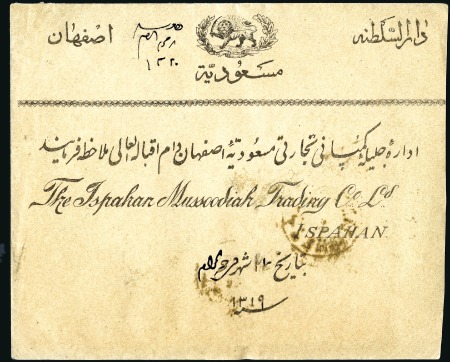 دارالسلطنه
اصفهان
۱۳۲۰
مسعودیّة
ادارهٔ جلیلهٔ کمپانی تجارتی مسعودیّهٔ اصفهان دام اقباله العالی ملاحظه فرمایند
The Ispahan Mussoodiah Trading Co. Ld.
ISPAHAN
بتاریخ شهر
سنه ۱۳۱۹